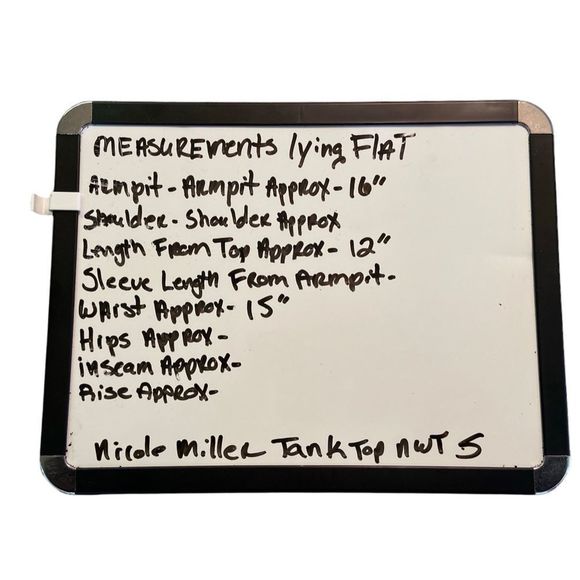 MEASUREMENTS lying FLAT
ARMpit - ARMpit Approx - 16"
Shoulder - Shoulder Approx
Length From Top Approx - 12"
Sleeve Length From ARMpit -
WAist Approx - 15"
Hips Approx -
inseam Approx -
Rise Approx -
Nicole Miller Tank Top NWT S